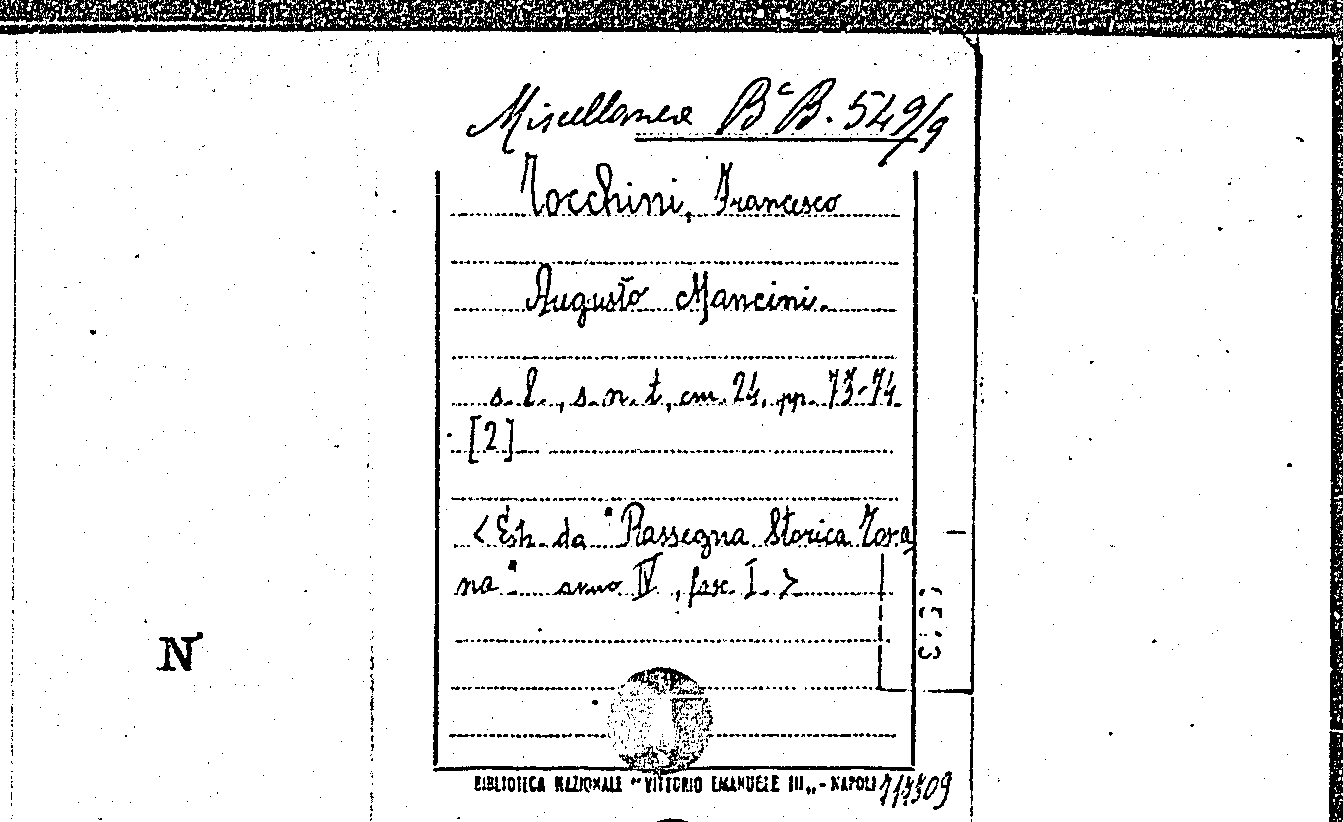 Miscellanea Bᶜ B. 549/9
Tocchini, Francesco
Augusto Mancini.
s. l., s. n. t., cm. 24, pp. 73-74.
[2]
<Estr. da "Rassegna Storica Tosca
na" anno IV, fasc. I.>
N
BIBLIOTECA NAZIONALE "VITTORIO EMANUELE III„ - NAPOLI